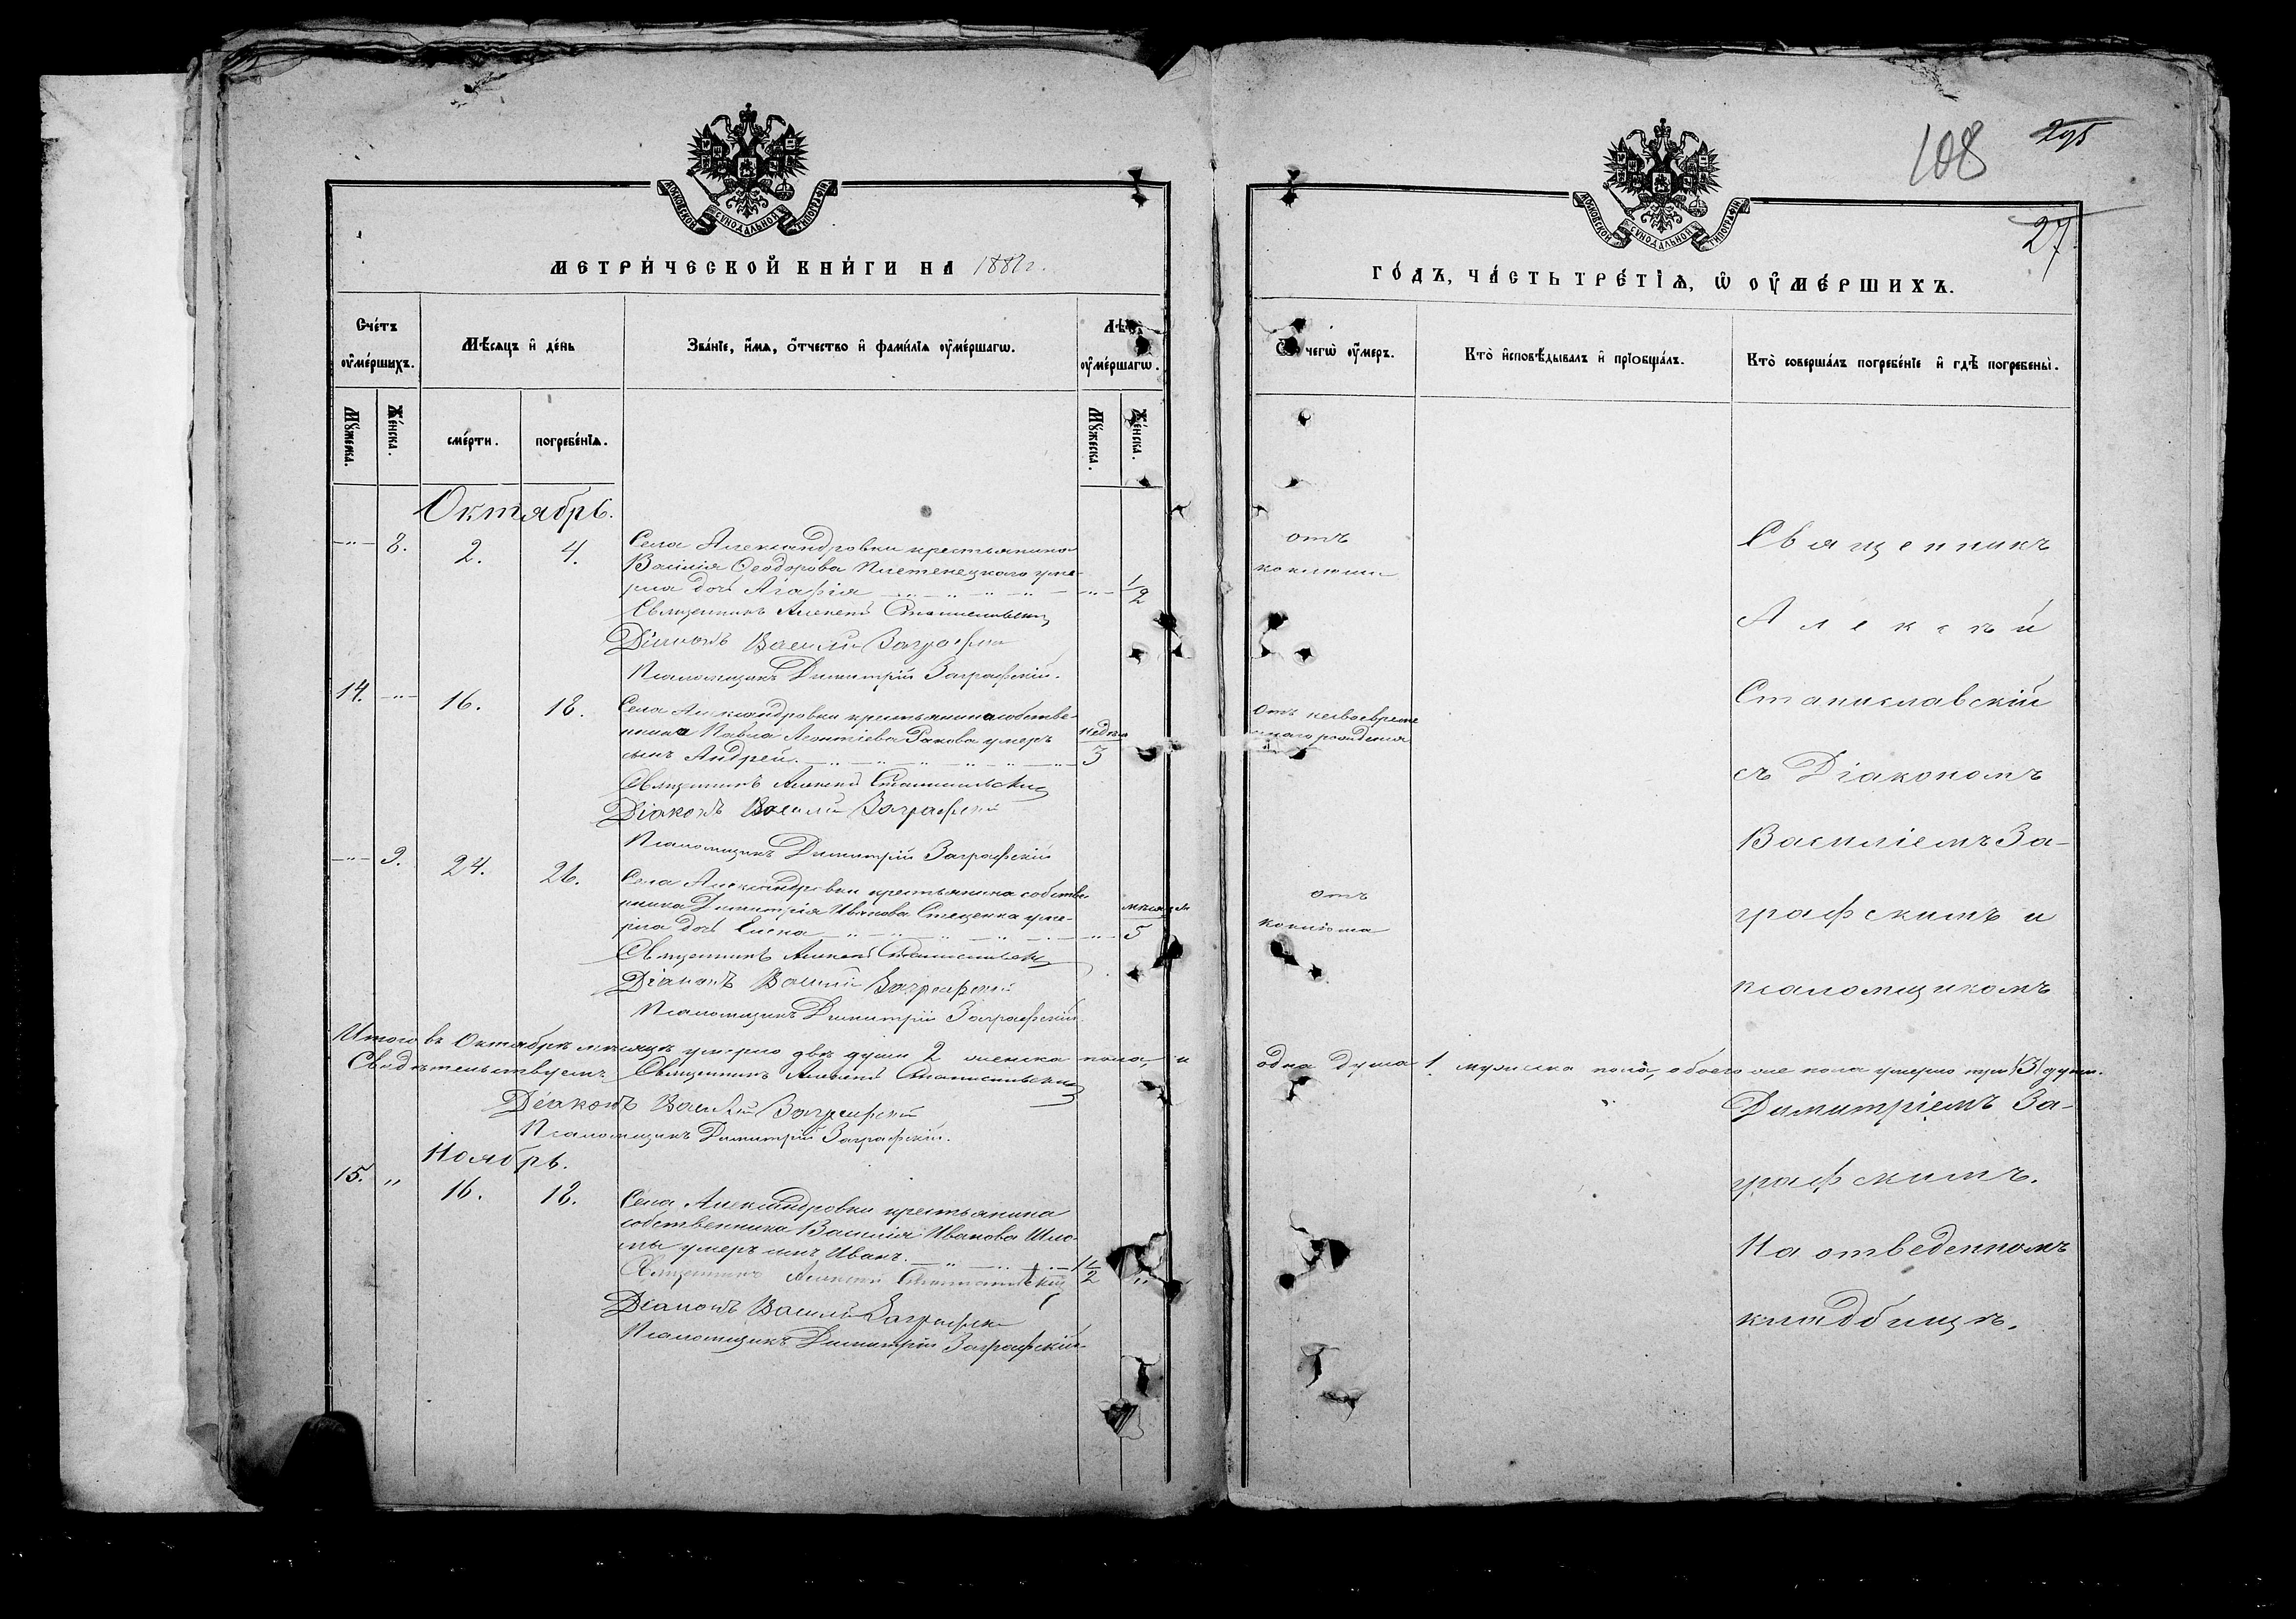 МОСКОВСКОЙ СѴНОДАЛЬНОЙ ТИПОГРАФІИ
МЕТРИ́ЧЕСКОЙ КНИ́ГИ НА 1887 г.
Сче́тъ ᲂу҆ме́ршихъ.
Мѣ́сяцъ и҆ де́нь
Зва́нїе, и҆́мѧ, ѻ҆́тчество и҆ фами́лїѧ ᲂу҆ме́ршагѡ.
Лѣ́
ᲂу҆ме́ршагѡ.
Мꙋ́жеска.
Же́нска.
сме́рти.
погребе́нїѧ.
Мꙋ́жеска.
Же́нска.
Октябрь.
-„- 8. 2. 4. Села Александровки крестьянина
Василія Ѳеодорова Плетенецкаго уме-
рла дочь Агафія -„- 1/2
Священникъ Алексѣй Станиславскій
Діаконъ Василій Заграфскій
Псаломщикъ Димитрій Заграфскій.
14. -„- 16. 18. Села Александровки крестьянина собстве-
нника Павла Леонтіева Ракова умеръ недѣли
сынъ Андрей. 3
Священникъ Алексѣй Станиславскій
Діаконъ Василій Заграфскій
Псаломщикъ Димитрій Заграфскій
-„- 9. 24. 26. Села Александровки крестьянина собстве-
нника Димитрія Иванова Стеценка уме- мѣсяцевъ
рла дочь Елена -„- 5
Священникъ Алексѣй Станиславскій
Діаконъ Василій Заграфскій
Псаломщикъ Димитрій Заграфскій.
Итого въ Октябрѣ мѣсяцѣ умерло двѣ души 2 женска пола, и
Свидѣтельствуемъ: Священникъ Алексѣй Станиславскій
Діаконъ Василій Заграфскій
Псаломщикъ Димитрій Заграфскій.
Ноябрь.
15. „ 16. 18. Села Александровки крестьянина
собственника Василія Иванова Шло-
мы умеръ сынъ Иванъ. 1 1/2 „
Священникъ Алексѣй Станиславскій
Діаконъ Василій Заграфскій
Псаломщикъ Димитрій Заграфскій
108
295
27
МОСКОВСКОЙ СѴНОДАЛЬНОЙ ТИПОГРАФІИ
ГО́ДЪ, ЧА́СТЬ ТРЕ́ТЇѦ, Ѡ҆ ОУ҆МЕ́РШИХЪ.
чегѡ̀ ᲂу҆́меръ.
Кто̀ и҆сповѣ́дывалъ и҆ прїѡбща́лъ.
Кто̀ соверша́лъ погребе́нїе и҆ гдѣ̀ погребены̀.
отъ
коклюша
Отъ несвоевреме
ннаго рожденія
отъ
коклюша
Священникъ
Алексѣй
Станиславскій
съ Діакономъ
Василіемъ За-
графскимъ и
псаломщикомъ
одна душа 1. мужеска пола, обоего же пола умерло три (3) души.
Димитріемъ За-
графскимъ.
На отведенномъ
кладбищѣ.